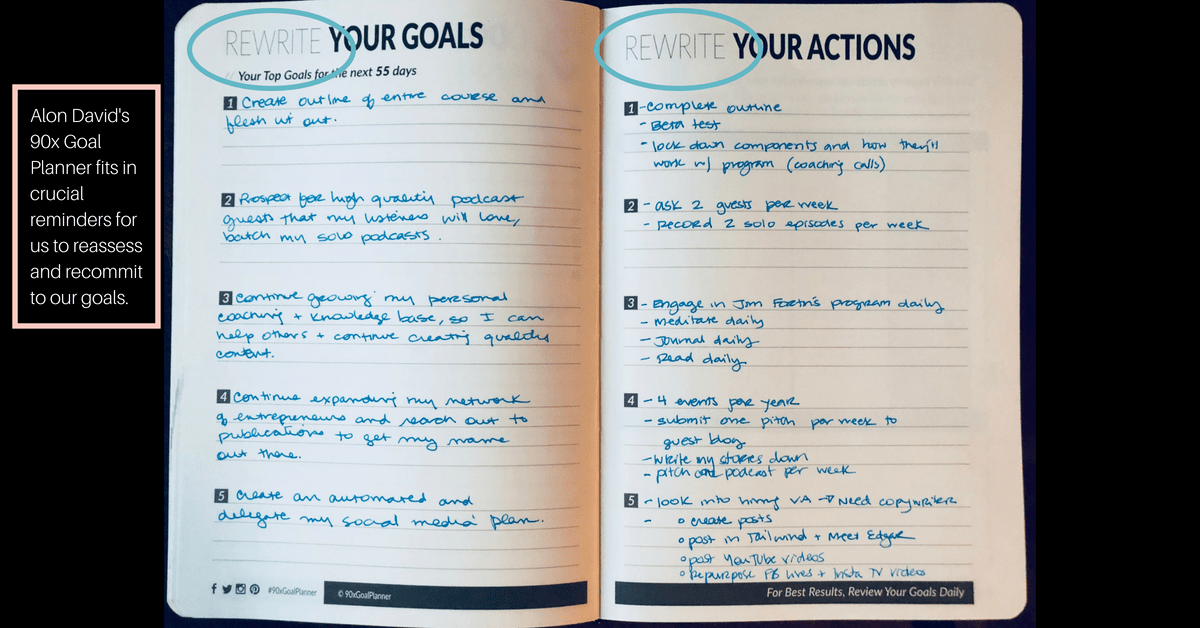 Alon David's
90x Goal
Planner fits in
crucial
reminders for
us to reassess
and recommit
to our goals.
REWRITE YOUR GOALS
“ Your Top Goals for the next 55 days
1 Create outline of entire course and
flesh it out.
2 Prospect for high quality podcast
guests that my listeners will love,
batch my solo podcasts.
3 Continue growing my personal
coaching + knowledge base, so I can
help others + continue creating quality
content.
4 Continue expanding my network
of entrepreneurs and reach out to
publications to get my name
out there.
5 Create an automated and
delegate my social media plan.
#90xGoalPlanner
© 90xGoalPlanner
REWRITE YOUR ACTIONS
1 - complete outline
- Beta test
- lock down components and how they'll
work w/ program (coaching calls)
2 - ask 2 guests per week
- Record 2 solo episodes per week
3 - Engage in Jim Fortin's program daily
- meditate daily
- Journal daily
- Read daily
4 - 4 events per year
- submit one pitch per week to
guest blog
- write my stories down
- pitch one podcast per week
5 - look into hiring VA → Need copywriter
- o create posts
o post in Tailwind + Meet Edgar
o post YouTube videos
o Repurpose FB lives + Insta TV videos
For Best Results, Review Your Goals Daily